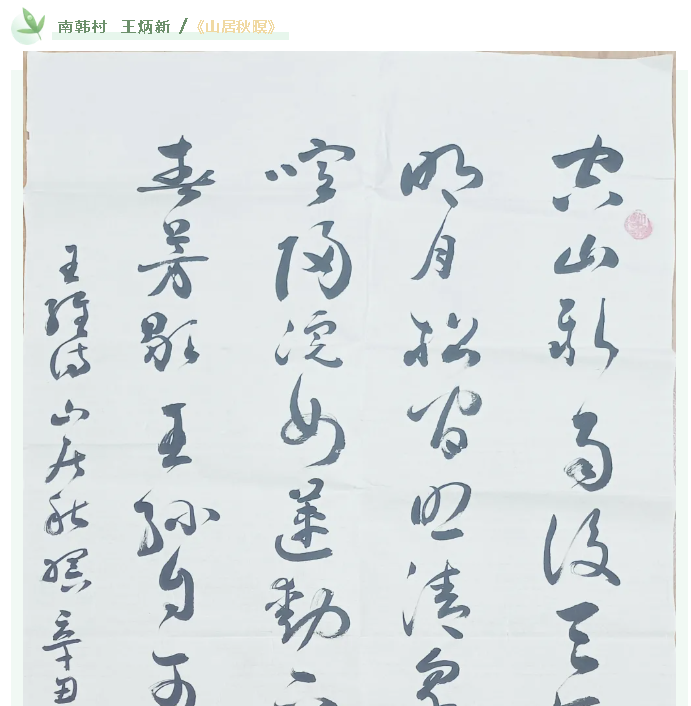 南韩村 王炳新 /《山居秋暝》
空山新雨後天
明月松間照清泉
喧歸浣女蓮動下
春芳歇王孫自可
王維詩山居秋暝辛丑